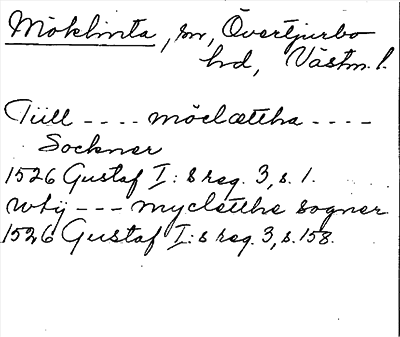 Möklinta, sn, Övertjurbo
hd, Västm. l.
Tiill - - - - möclættha - - - -
Sockner
1526 Gustaf I:s reg. 3, s. 1.
wtij - - - myclettha sogner
1526 Gustaf I:s reg. 3, s. 158.